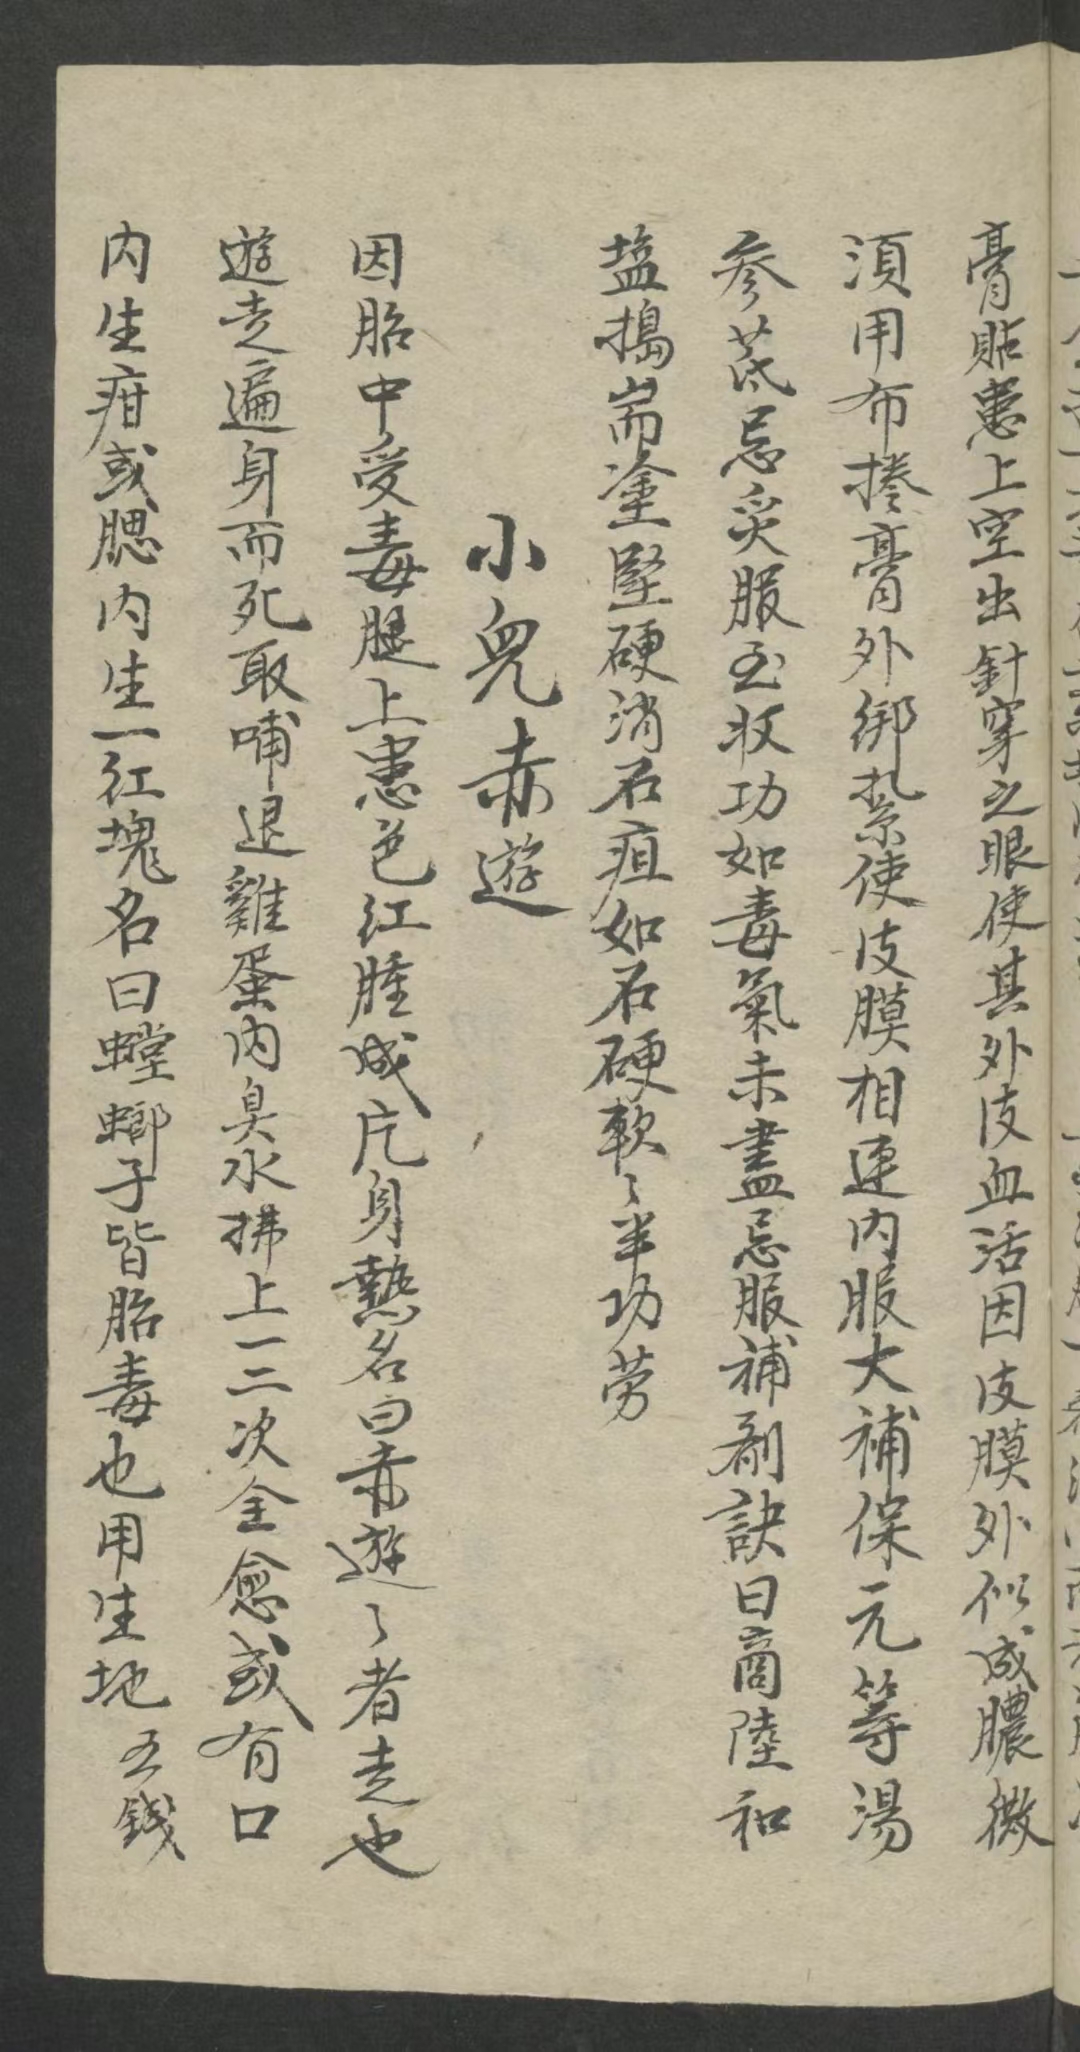 膏貼患上空出針穿之眼使其外皮血活因皮膜外似成膿微
須用布捲膏外綁紮使皮膜相連內服大補保元等湯
參芪忌炙服至收功如毒氣未盡忌服補劑訣曰商陸和
塩搗耑塗堅硬消石疽如石硬軟〻半功劳
小兒赤遊
因胎中受毒腿上患色红腫成片身熱名曰赤遊〻者走也
遊走遍身而死取哺退雞蛋内臭水拂上一二次全愈或有口
内生疳或腮内生一红塊名曰螳螂子皆胎毒也用生地五錢